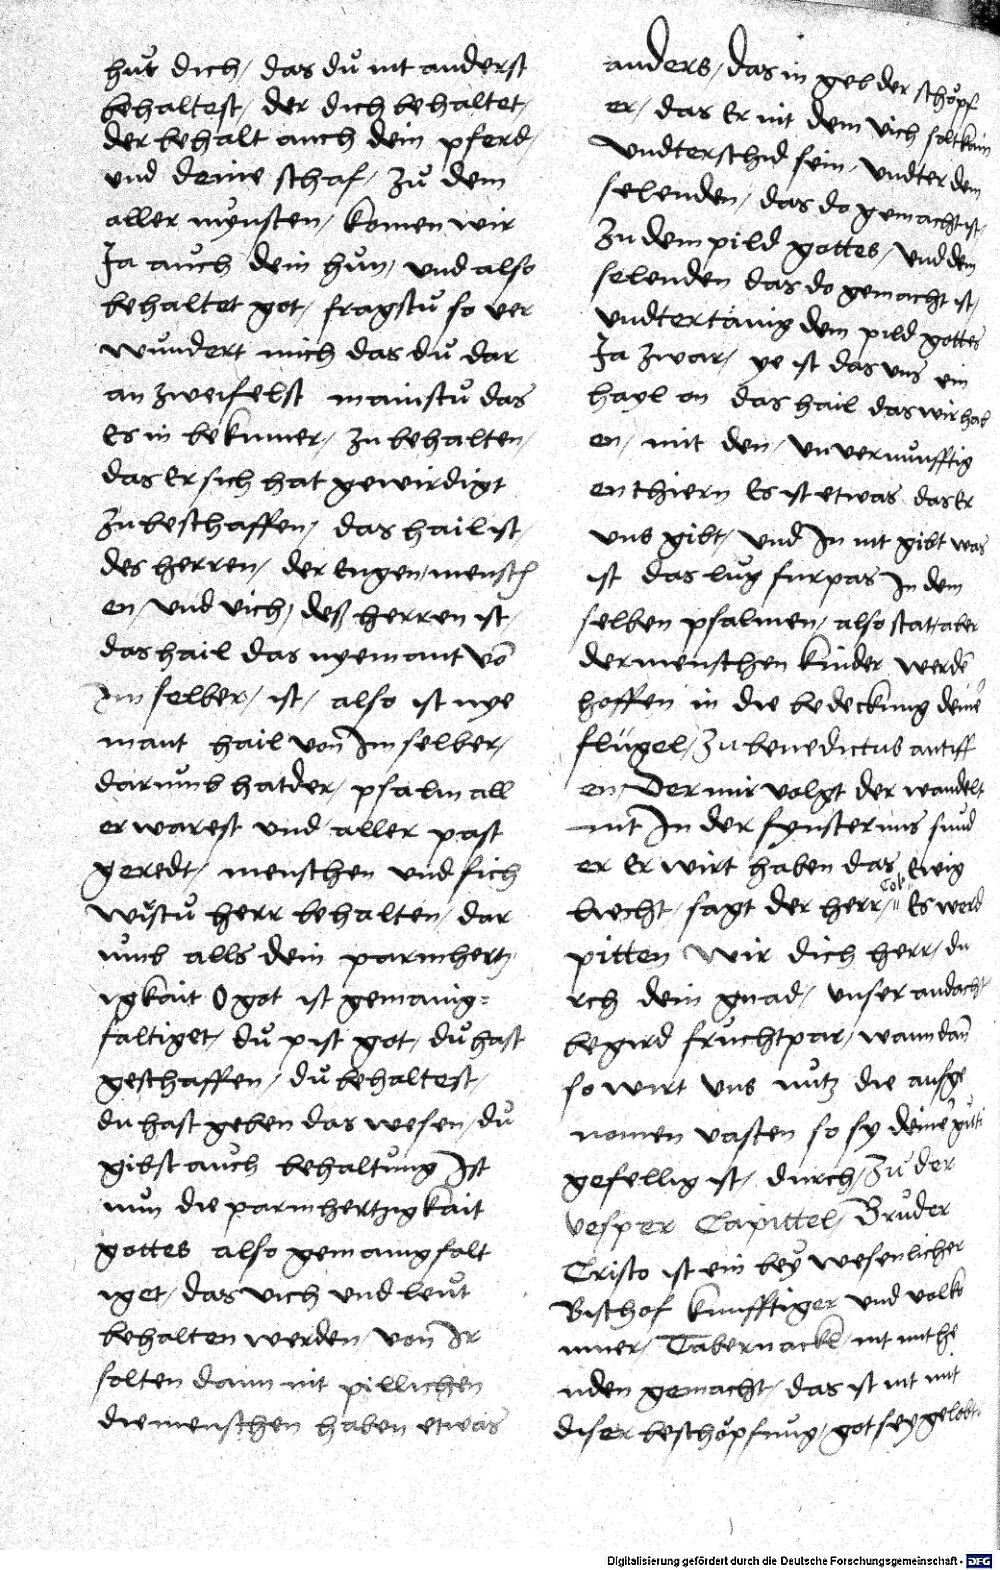 hut dich / das dů nit anderst
behaltest / der dich behaltet /
der behalt auch dein pferd /
und deine schaf / zů dem
aller mynsten / komen wir
Ja auch dein hůn / und also
behaltet got / fragstů so ver
wundert mich das dů dar
an zweifelst mainstů das
Es in bekumer / zu behalten /
das Er sich hat gewirdigt
zu beschaffen / das hail ist /
des herren / der engen / mensch
en / und vich / deß herren ist /
das hail das nyemant vō
Im selber / ist / also ist nye
mant hail von Im selber /
darumb hat der / psalm all
er warest und aller past
geredt / menschen und fich
wirstů herr behalten / dar
umb alls dein parmhertz
igkait O got ist gemanig=
faltiget / dů pist got / dů hast
geschaffen / dů behaltest /
du hast geben das wesen / dů
gibst auch behaltung Ist
nun die parmhertzigkait
gottes also gemanigfalt
iget / das vich und leut
behalten werden / von Ir
solten dann nit pillichen
die menschen haben etwas
anders / das in geb der schöpf
er / das Er nit dem vich solt kain
undterschid sein / undter dem
selenden / das do gemacht ist /
zu dem pild gottes / und dem
selenden das do gemacht ist /
undtertänig dem pild gottes
Ja zwar / ye ist das uns ein
hayl on das hail das wir hab
en / mit den / unvernunfftig
en thiern Es ist etwas das Er
uns gibt / und In nit gibt was
ist das lug furpas In dem
selben psalmen / also stat / aber
der menschen kinder werdē
hoffen in die bedeckung deine
flügel / zu benedictus antiff
en / Der mir volgt der wandelt
nit In der fynsternus sund
er Er wirt haben das Ewig
liecht / sagt der herr / Col' Es werd
pitten wir dich herr / du
rch dein gnad / unser andacht
begird fruchtpar / wann dan̄
so wirt uns nutz die aufge
nomen vasten so sy deinē güti
gefellig ist / durch / zů der
vesper Capittel / Bruder
Cristo ist ein beywesenlicher
Bischof kunfftiger und volko
mner / Tabernackel / nit mit he
nden gemacht / das ist nit mit
diser beschöpfnug / got sey gelobt
Digitalisierung gefördert durch die Deutsche Forschungsgemeinschaft - DFG